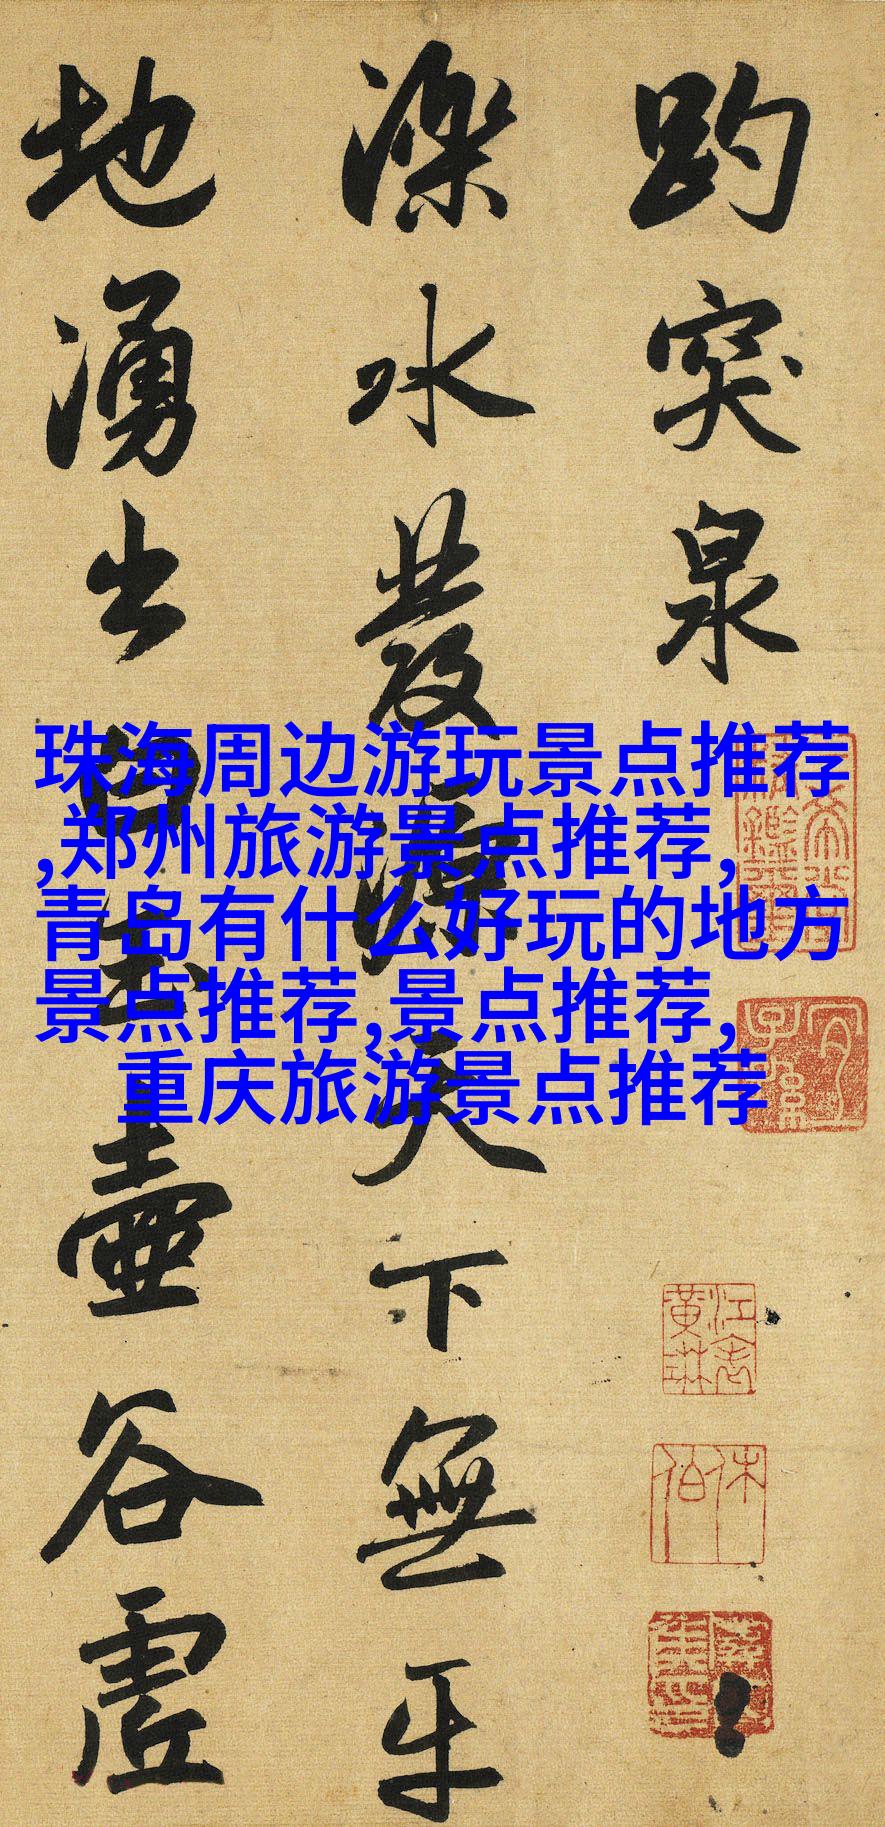 趵突泉
濼水發源天下無
地湧出白玉壺谷虛
珠海周边游玩景点推荐
,郑州旅游景点推荐,
青岛有什么好玩的地方
景点推荐,景点推荐,
重庆旅游景点推荐